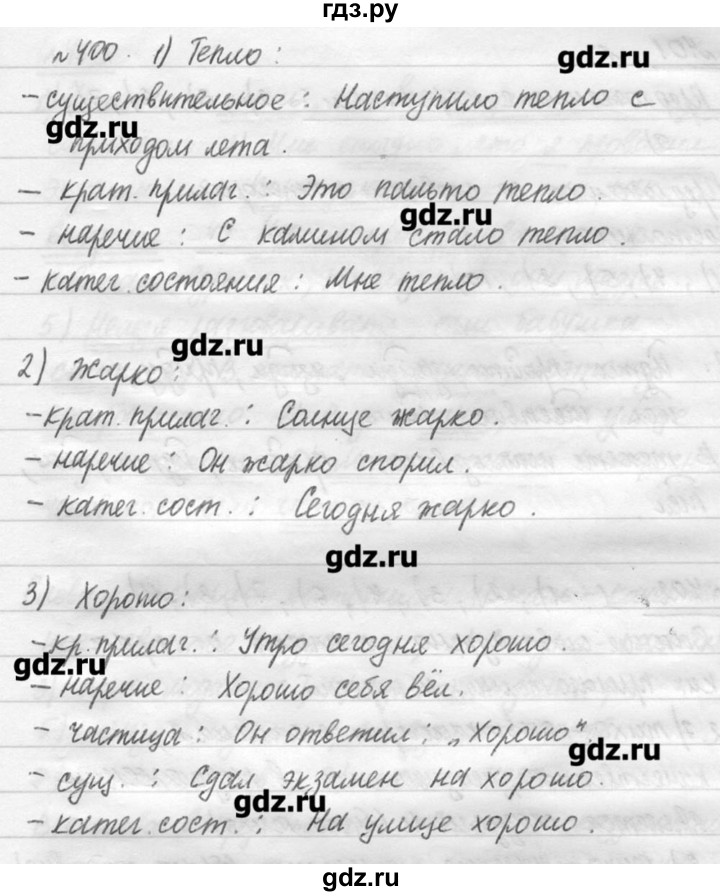 гдз.ру
№400. 1) Тепло:
gdz.ru
- существительное: Наступило тепло с
gdz.ru
приходом лета.
- крат. прилаг.: Это пальто тепло.
gdz.ru
- наречие: С камином стало тепло.
- катег. состояния: Мне тепло.
gdz.ru
2) Жарко:
- крат. прилаг.: Солнце жарко.
- наречие: Он жарко спорил.
- катег. сост.: Сегодня жарко.
gdz.ru
3) Хорошо:
- кр. прилаг.: Утро сегодня хорошо.
gdz.ru
- наречие: Хорошо себя вёл.
- частица: Он ответил: „Хорошо"
gdz.ru
- сущ.: Сдал экзамен на хорошо.
gdz.ru
- катег. сост.: На улице хорошо.
gdz.ru